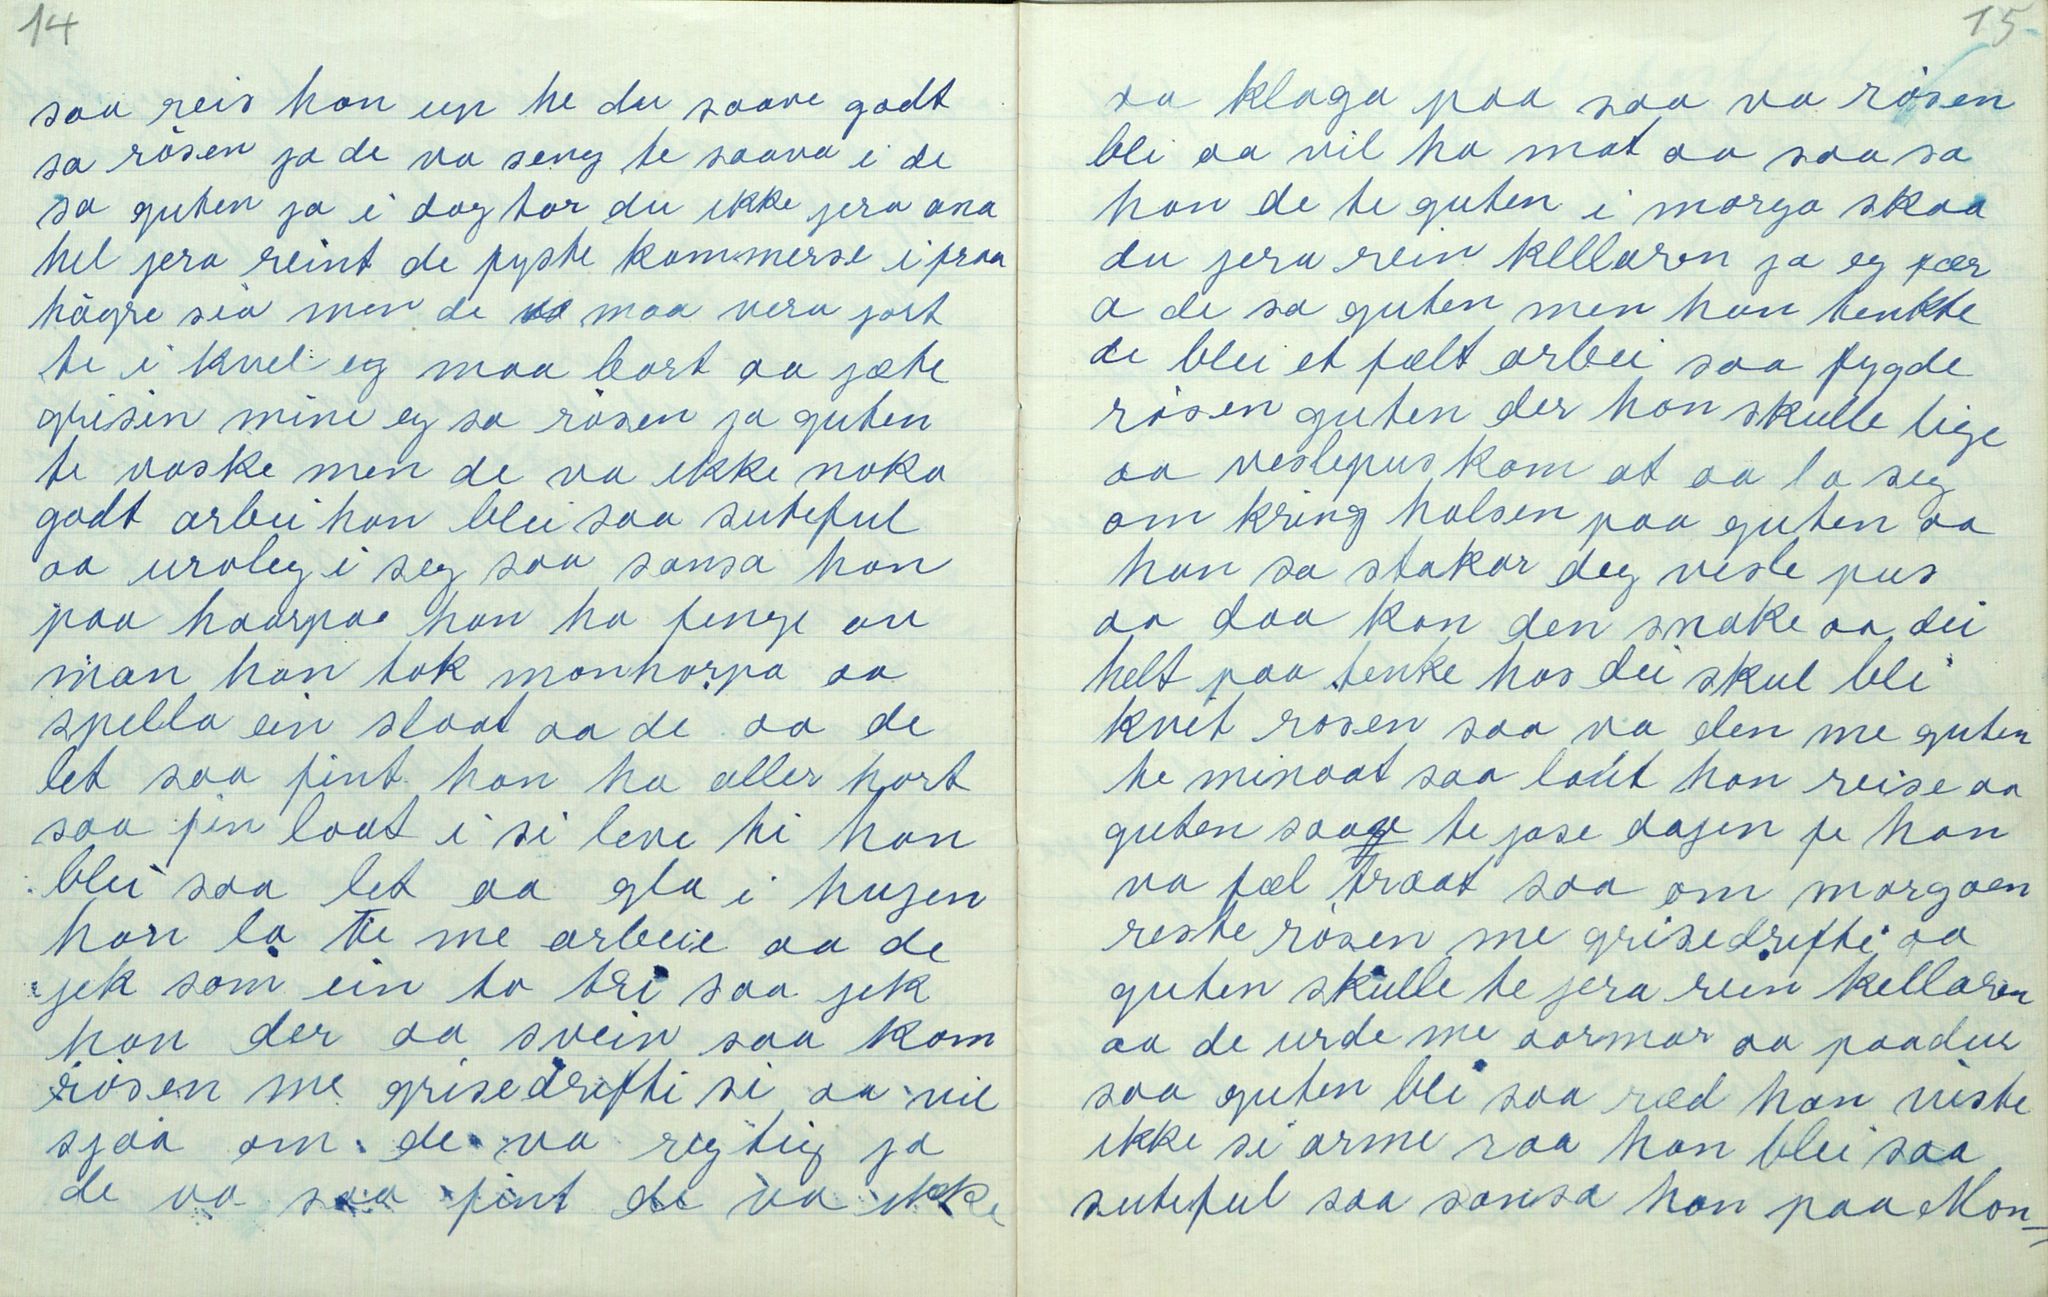 14
saa reis han up he du saave godt
sa rösen ja de va seng te saava i de
sa guten ja i dag tar du ikke jera ana
hel jera reint de fyste kammerse ifraa
högre sia men de maa vera jort
te i kvel eg maa bort aa jæte
grisin mine eg sa rösen ja guten
te vaske men de va ikke noka
godt arbei han blei saa suteful
aa uroleg i seg saa sansa han
paa haarpae han ha fenge au
man han tok monharpa aa
spella ein slaat aa de aa de
let saa fint han ha aller hort
saa fin laat i si leve ti han
blei saa let aa gla i hugen
han la Te me arbeie aa de
jek som ein to tri saa jek
han der aa svein saa kom
rösen me grisedrifti si aa vil
sjaa om de va regtig ja
de va saa fint de va ikke
15
aa klaga paa saa va rösen
bli aa vil ha mat aa saa sa
han de te guten i morga skaa
du jera rein kellaren ja eg fær
a de sa guten men han tenkte
de blei et fælt arbei saa fygde
rösen guten der han skulle lige
aa veslepus kom at aa la seg
om kring halsen paa guten aa
han sa stakar deg vesle pus
aa daa kan den snake aa dei
helt paa tenke has dei skul bli
kvit rosen saa va den me guten
te minaat saa laut han reise aa
guten saav te jase dagen fe han
va fæl traat saa om morgaen
reste rösen me grisedrifti aa
guten skulle te jera rein kellaren
aa de urde me aarmar aa paadur
saa guten blei saa ræd han viste
ikke si arme raa han blei saa
suteful saa sansa han paa Mon-